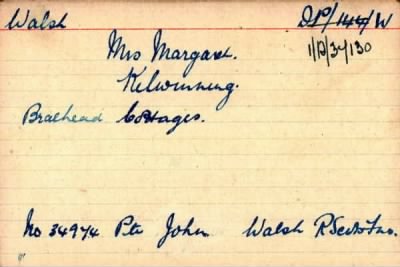 Walsh DP/144/W
Mrs Margaret. 1/D/34/130
Kilwinning.
Braehead Cottages.
No 34974 Pte John Walsh R Scots Fus.